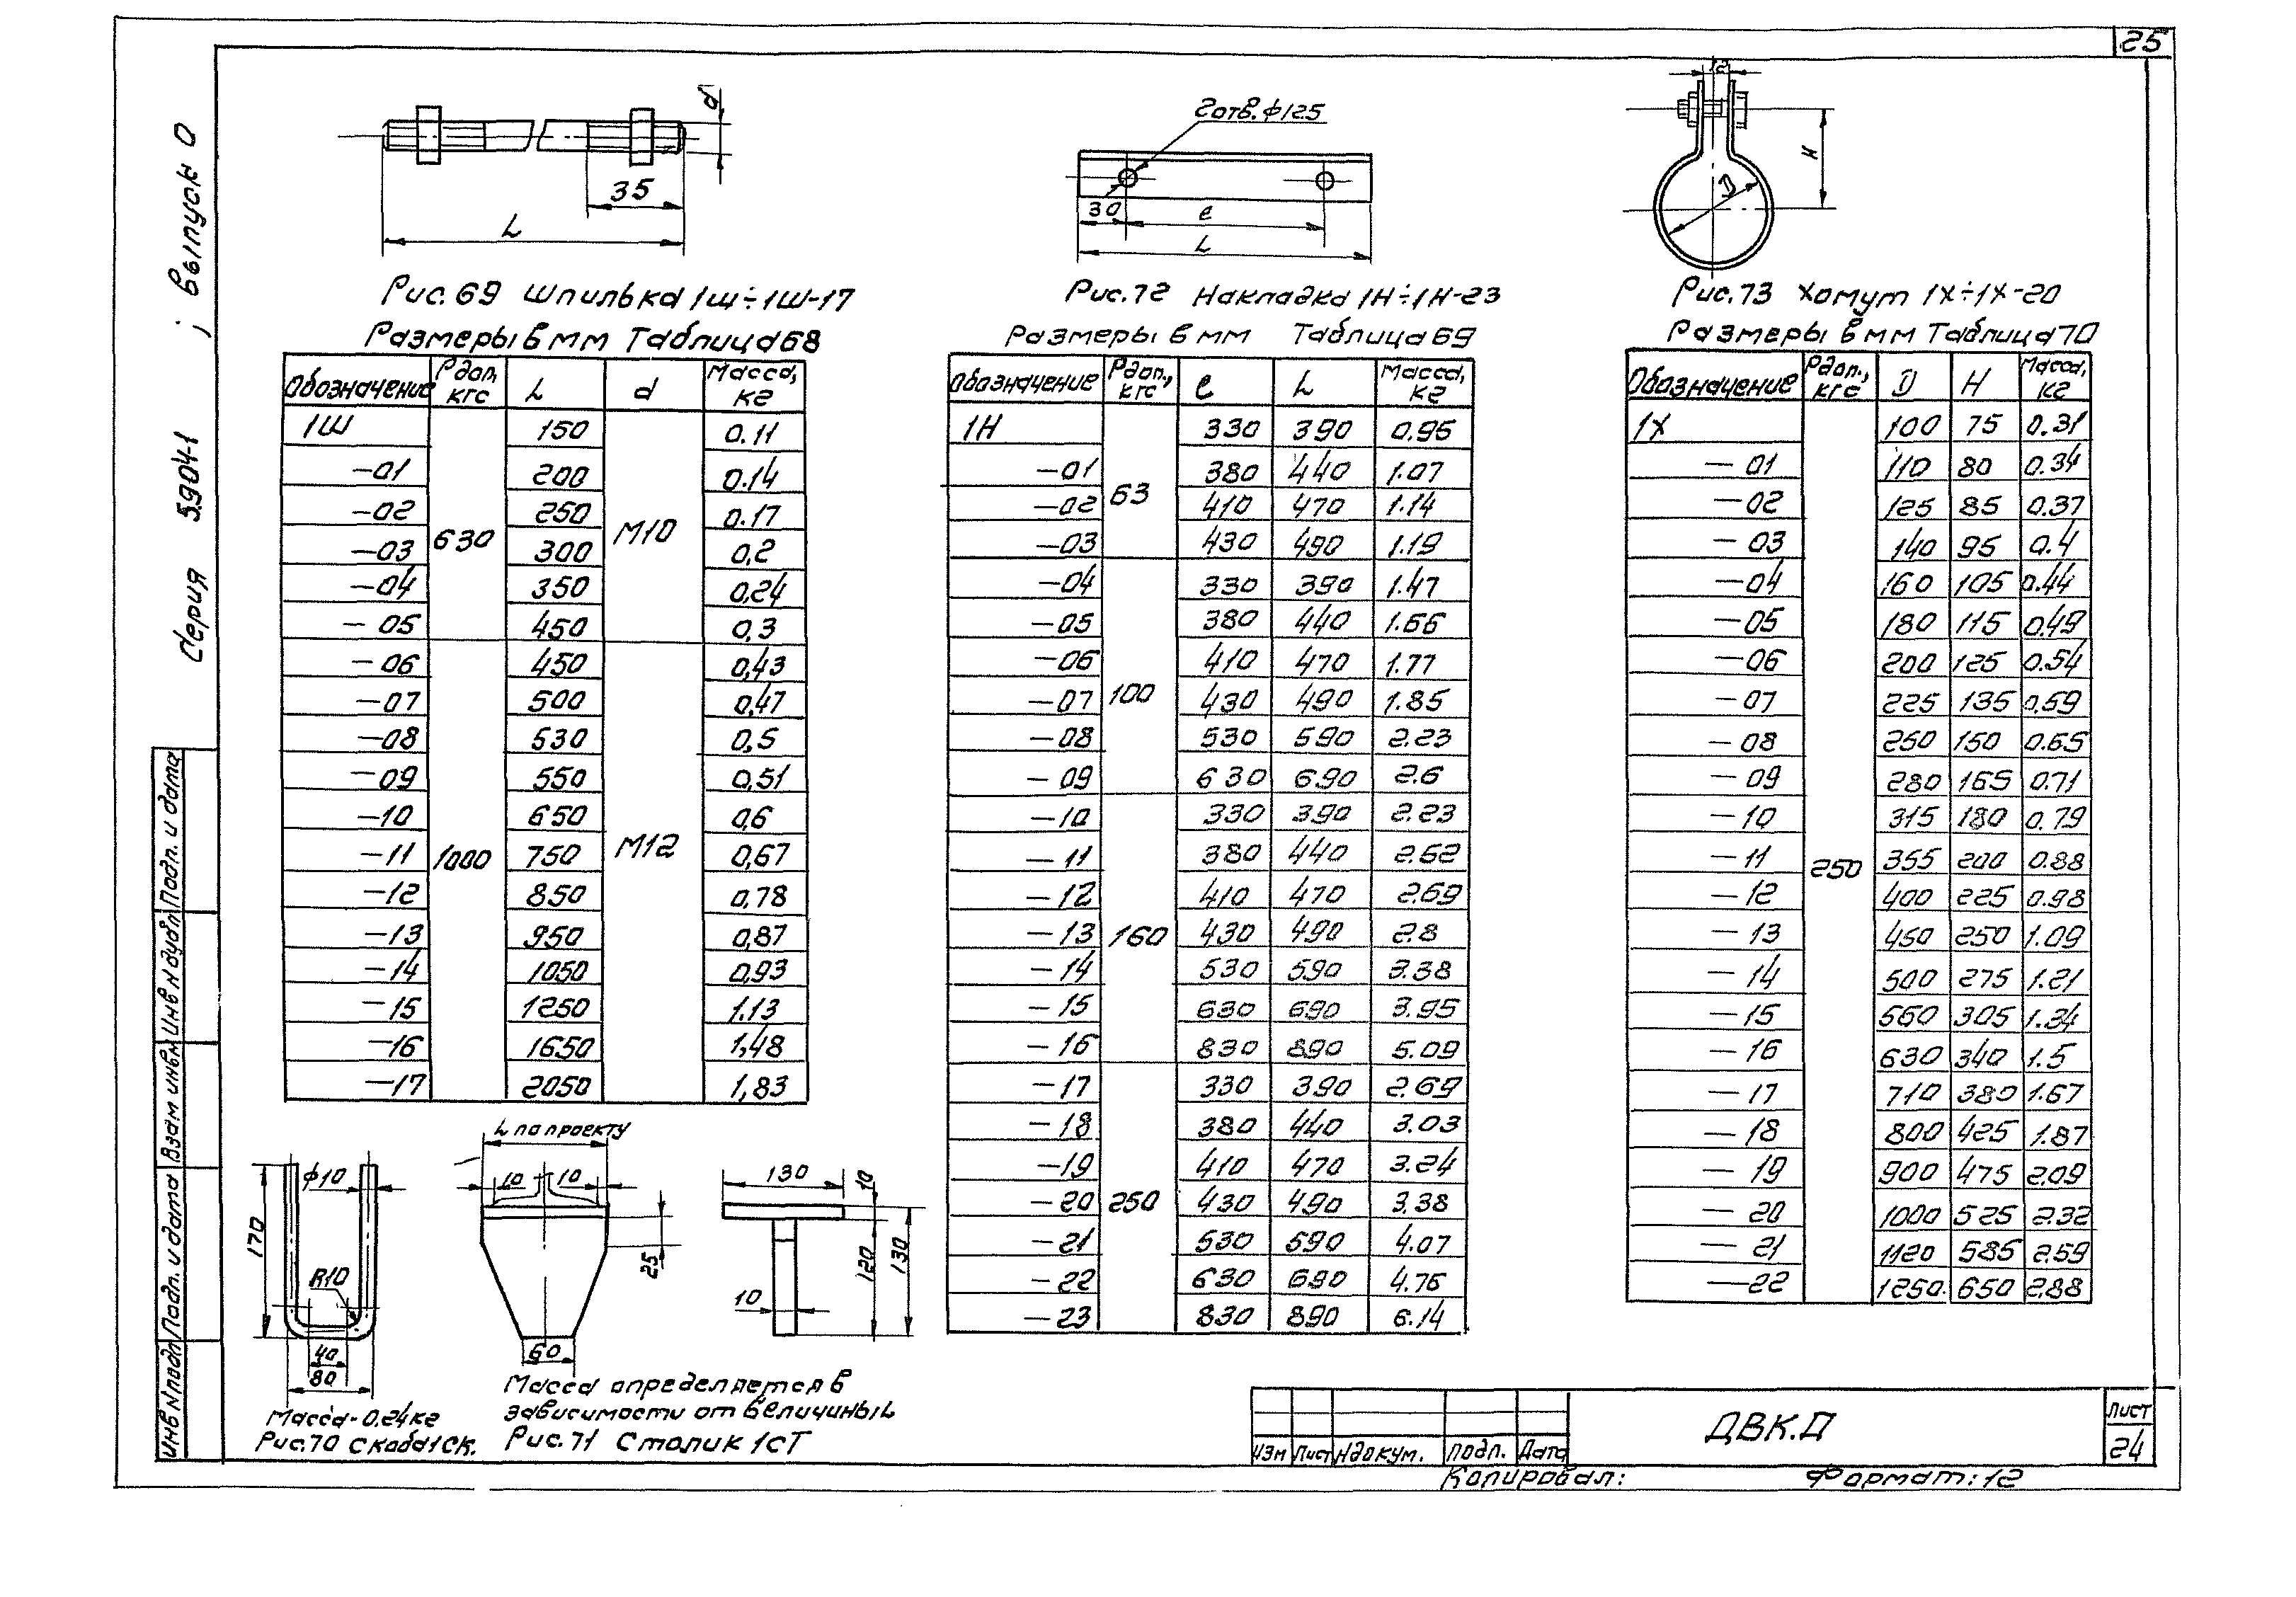 25
Серия 5.904-1 ; выпуск 0
d
35
L
Рис. 69 Шпилька 1Ш÷1Ш-17
Размеры в мм Таблица 68
Обозначение Рдоп, кгс L d Масса, кг
1Ш 630 150 М10 0.11
-01 200 0.14
-02 250 0.17
-03 300 0,2
-04 350 0,24
-05 450 0,3
-06 1000 450 М12 0,43
-07 500 0,47
-08 530 0,5
-09 550 0,51
-10 650 0,6
-11 750 0,67
-12 850 0,78
-13 950 0,87
-14 1050 0,93
-15 1250 1.13
-16 1650 1,48
-17 2050 1,83
2 отв. ф125
30
е
L
Рис. 72 Накладка 1Н÷1Н-23
Размеры в мм Таблица 69
Обозначение Рдоп., кгс, е L Масса, кг
1Н 63 330 390 0.95
-01 380 440 1.07
-02 410 470 1.14
-03 430 490 1.19
-04 100 330 390 1.47
-05 380 440 1.66
-06 410 470 1.77
-07 430 490 1.85
-08 530 590 2.23
-09 630 690 2.6
-10 160 330 390 2.23
-11 380 440 2.52
-12 410 470 2.69
-13 430 490 2.8
-14 530 590 3.38
-15 630 690 3.95
-16 830 890 5.09
-17 250 330 390 2.69
-18 380 440 3.03
-19 410 470 3.24
-20 430 490 3.38
-21 530 590 4.07
-22 630 690 4.76
-23 830 890 6.14
12
H
D
Рис. 73 Хомут 1Х÷1Х-20
Размеры в мм Таблица 70
Обозначение Рдоп., кгс D H Масса, кг
1Х 250 100 75 0.31
-01 110 80 0.34
-02 125 85 0.37
-03 140 95 0.4
-04 160 105 0.44
-05 180 115 0.49
-06 200 125 0.54
-07 225 135 0,59
-08 250 150 0.65
-09 280 165 0.71
-10 315 180 0.79
-11 355 200 0.88
-12 400 225 0.98
-13 450 250 1.09
-14 500 275 1.21
-15 560 305 1.34
-16 630 340 1.5
-17 710 380 1.67
-18 800 425 1.87
-19 900 475 2.09
-20 1000 525 2.32
-21 1120 585 2.59
-22 1250 650 2.88
ф10
170
R10
40
80
Масса-0.24кг
Рис. 70 Скоба 1Ск.
L по проекту
10 10
25
60
130
10
120
130
10
Масса определяется в
зависимости от величины L
Рис. 71 Столик 1сТ
Подп. и дата
Инв N дубл
Взам инв N
Подп. и дата
Инв N подл
Изм Лист N докум. Подп. Дата
ДВК.Д
Лист
24
Копировал: Формат: 12